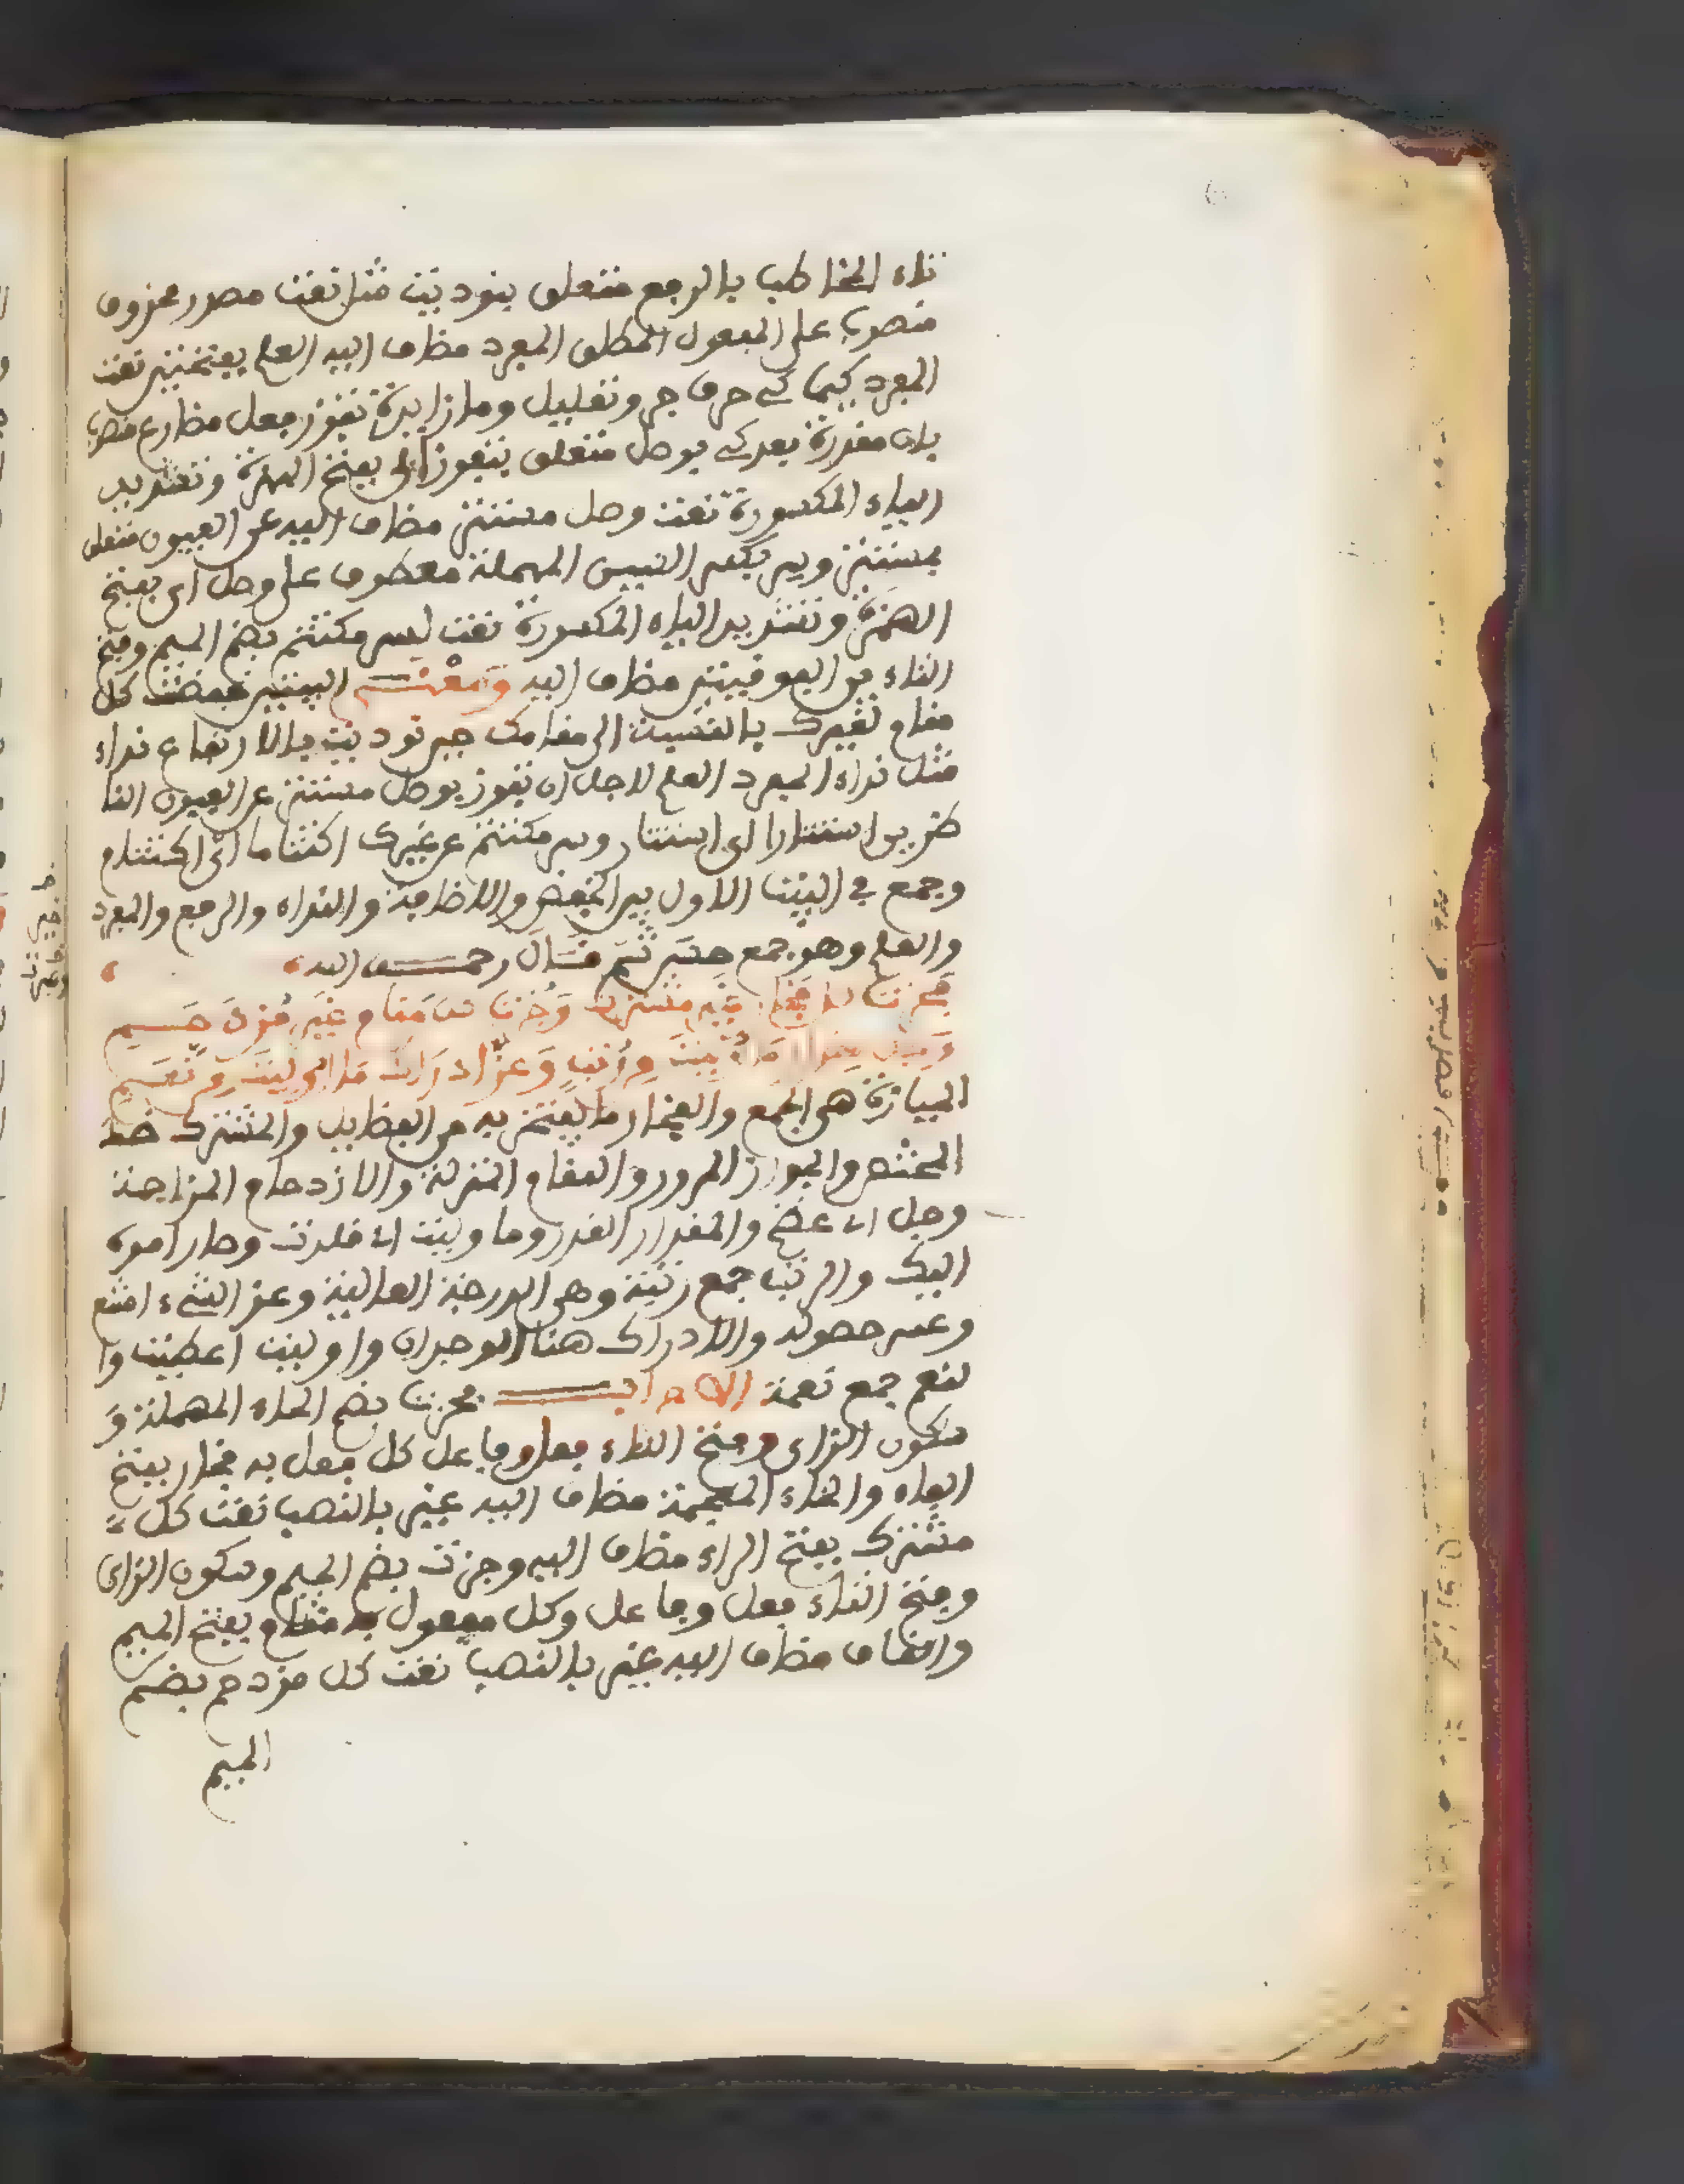 تاء المخاطب بالرفع متعلق بنوديت مثل نعت مصدر محذوف
منصوب على المفعول المطلق المفرد مضاف اليه العلم بفتحتين نعت
المفرد كيما كي حرف جر وتعليل وما زايدة تفوز فعل مضارع منصوب
بان مقدرة بعد كي بوصل متعلق بتفوز اي بفتح الهمزة وتشديد
الياء المكسورة نعت وصل مستتر مضاف اليه عن العيون متعلق
بمستتر وسر بكسر السين المهملة معطوف على وصل اي بفتح
الهمزة وتشديد الياء المكسورة نعت لسر مكتتم بضم الميم وفتح
التاء من الفوقيتين مضاف اليه ومعنى البيتين خفضت كل
مقام لغيرك بالنسبة الى مقامك حين نوديت بالارتفاع نداء
مثل نداء المفرد العلم لاجل ان تفوز بوصل مستتر عن العيون النا
ظرين استتارا اي استتار وسر مكتتم عن غيرك اكتتاما اي اكتتام
وجمع في البيت الاول بين الخفض والاضافة والنداء والرفع والمفرد
والعلم وهو جمع حسن ثم قال رحمه الله
فحزت كل فخار غير مشترك وجزت كل مقام غير مزدحم
وجل مقدار ما وليت من رتب وعز ادراك ما اوليت من نعم
الحيازة هي الجمع والفخار ما يفتخر به من الفضايل والمشترك ضد
المختص والجواز المرور والمقام المنزلة والازدحام المزاحمة
وجل اي عظم والمقدار القدر وما وليت اي قلدت وصار امره
اليك والرتب جمع رتبة وهي الدرجة العالية وعز الشيء امتنع
وعسر حصوله والادراك هنا الوجدان واوليت اعطيت وا
لنعم جمع نعمة الاعراب فحزت بضم الحاء المهملة و
سكون الزاي وفتح التاء فعل وفاعل كل مفعول به فخار بفتح
الفاء والخاء المعجمة مضاف اليه غير بالنصب نعت كل
مشترك بفتح الراء مضاف اليه وجزت بضم الجيم وسكون الزاي
وفتح التاء فعل وفاعل وكل مفعول به مقام بفتح الميم
والقاف مضاف اليه غير بالنصب نعت كل مزدحم بضم
الميم